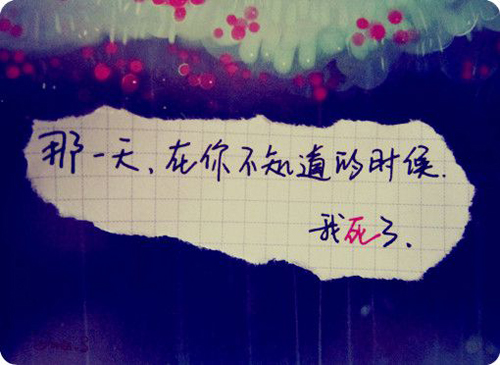 那一天、在你不知道的时候.
我死了、